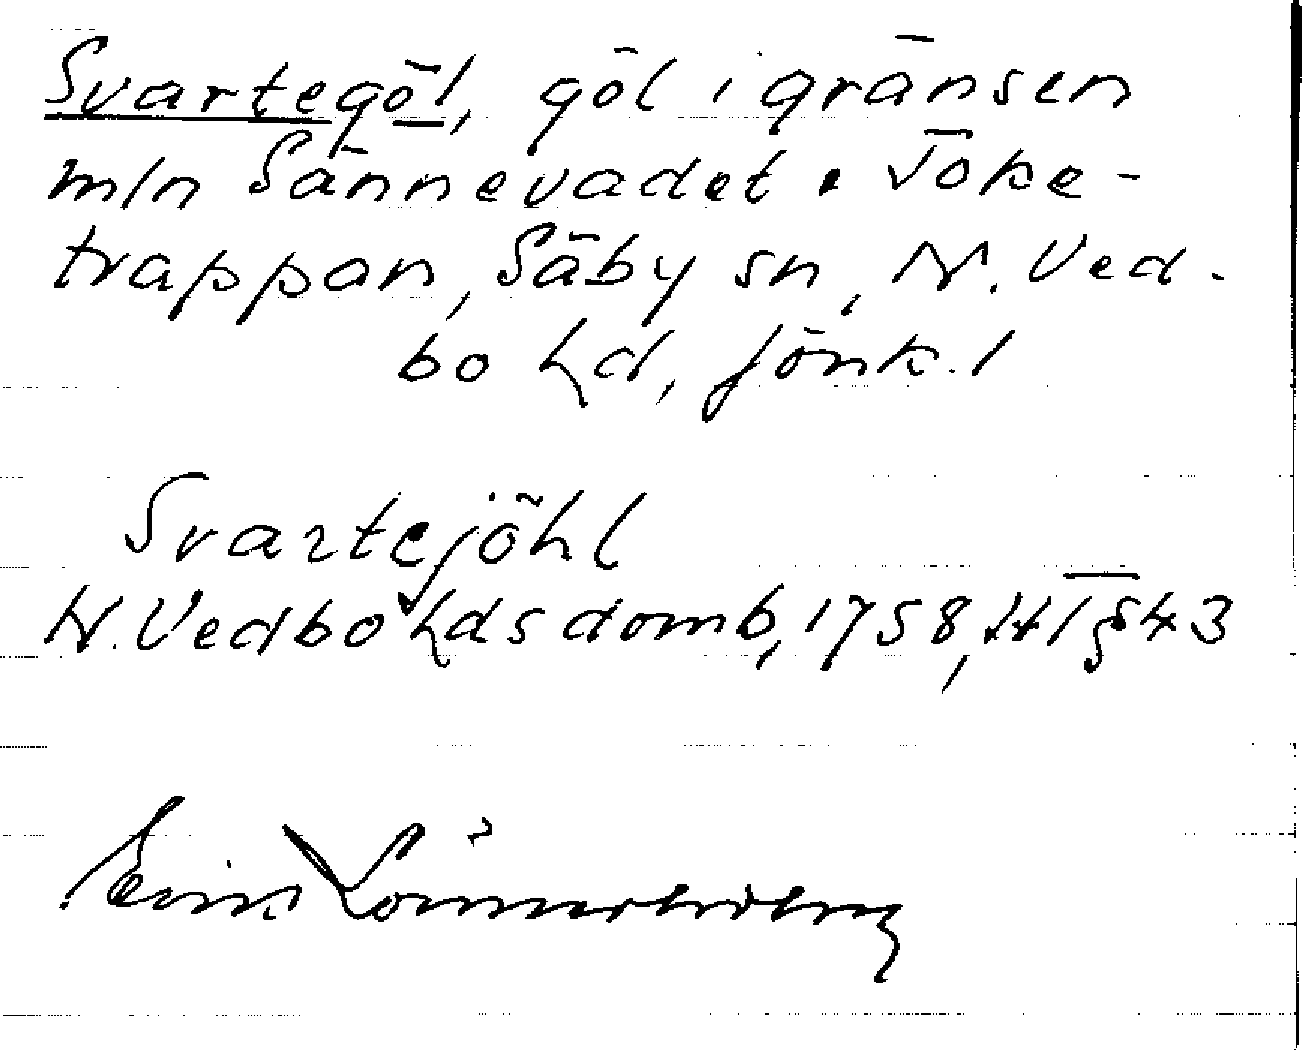 Svartegöl, göl i gränsen
mln Sännevadet o Töke-
trappan, Säby sn, N. Ved-
bo hd, Jönk. l
Svartejöhl
N. Vedbo hds domb, 1758, HT § 43
Lönnerholm